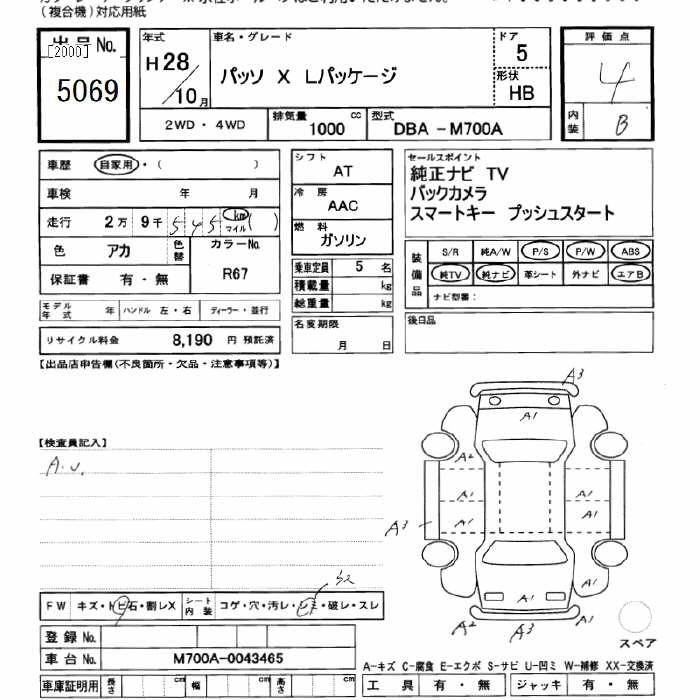 (複合機)対応用紙
出品No.
[2000]
5069
年式
H28/10月
車名・グレード
パッソ X Lパッケージ
ドア
5
形状
HB
評価点
4
内装
B
2WD・4WD
排気量
1000
cc
型式
DBA-M700A
車歴 自家用・( )
車検 年 月
走行 2万9千545 km マイル ( )
色 アカ 色替 カラーNo.
R67
保証書 有・無
モデル年式 年 ハンドル 左・右 ディーラー・並行
リサイクル料金 8,190 円 預託済
シフト
AT
冷房
AAC
燃料
ガソリン
乗車定員 5 名
積載量 kg
総重量 kg
名変期限
月 日
セールスポイント
純正ナビ TV
バックカメラ
スマートキー プッシュスタート
装備品
S/R 純A/W P/S P/W ABS
純TV 純ナビ 革シート 外ナビ エアB
ナビ型番:
後日品
【出品店申告欄(不良箇所・欠品・注意事項等)】
【検査員記入】
A.U.
A3
A1
A2
A1
A1
A1
A1
A3
A1
A1
A1
A2
A3
A2
スペア
FW キズ・トビ石・割レX シート内装 コゲ・穴・汚レ・シミ・破レ・スレ
登録No.
車台No. M700A-0043465
車庫証明用 長さ cm 幅 cm 高さ cm
A-キズ C-腐食 E-エクボ S-サビ U-凹ミ W-補修 XX-交換済
工具 有・無 ジャッキ 有・無